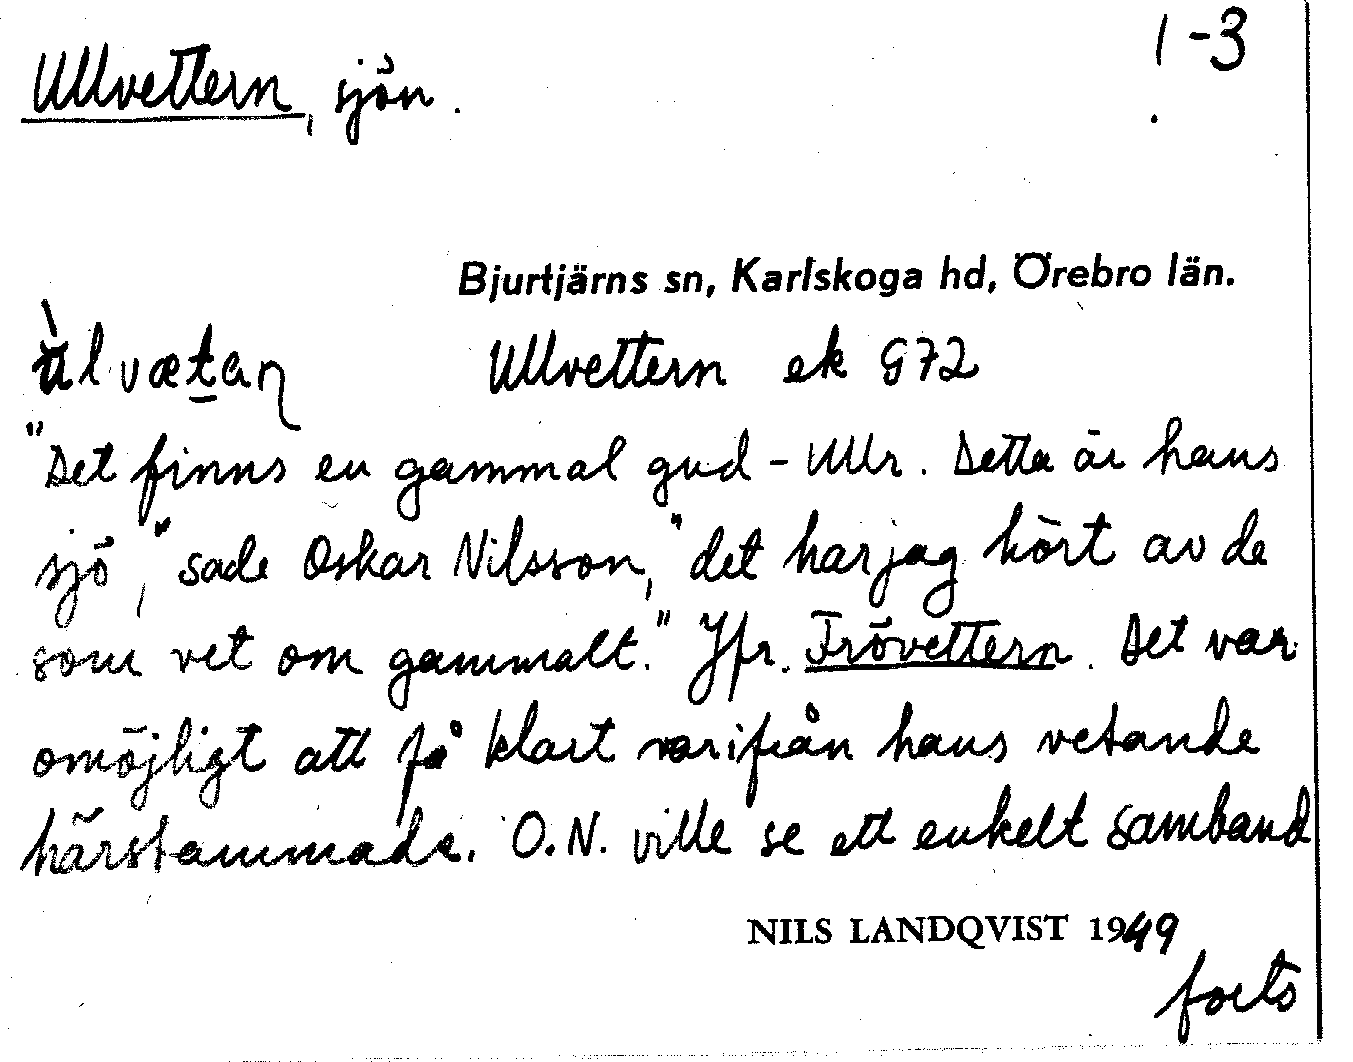 Ullvettern, sjön.
1-3
Bjurtjärns sn, Karlskoga hd, Örebro län.
Ullvettern ek 972
"Det finns en gammal gud - Ullr. Detta är hans
sjö," sade Oskar Nilsson, "det har jag hört av de
som vet om gammalt." Jfr. Frövettern. Det var
omöjligt att få klart varifrån hans vetande
härstammade. O.N. ville se ett enkelt samband
NILS LANDQVIST 1949
forts